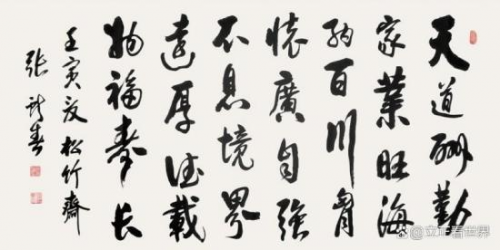 天道酬勤
家業旺海
納百川胸
懷廣自強
不息境界
遠厚德載
物福壽長
壬寅 松竹齋
張 春
看世界